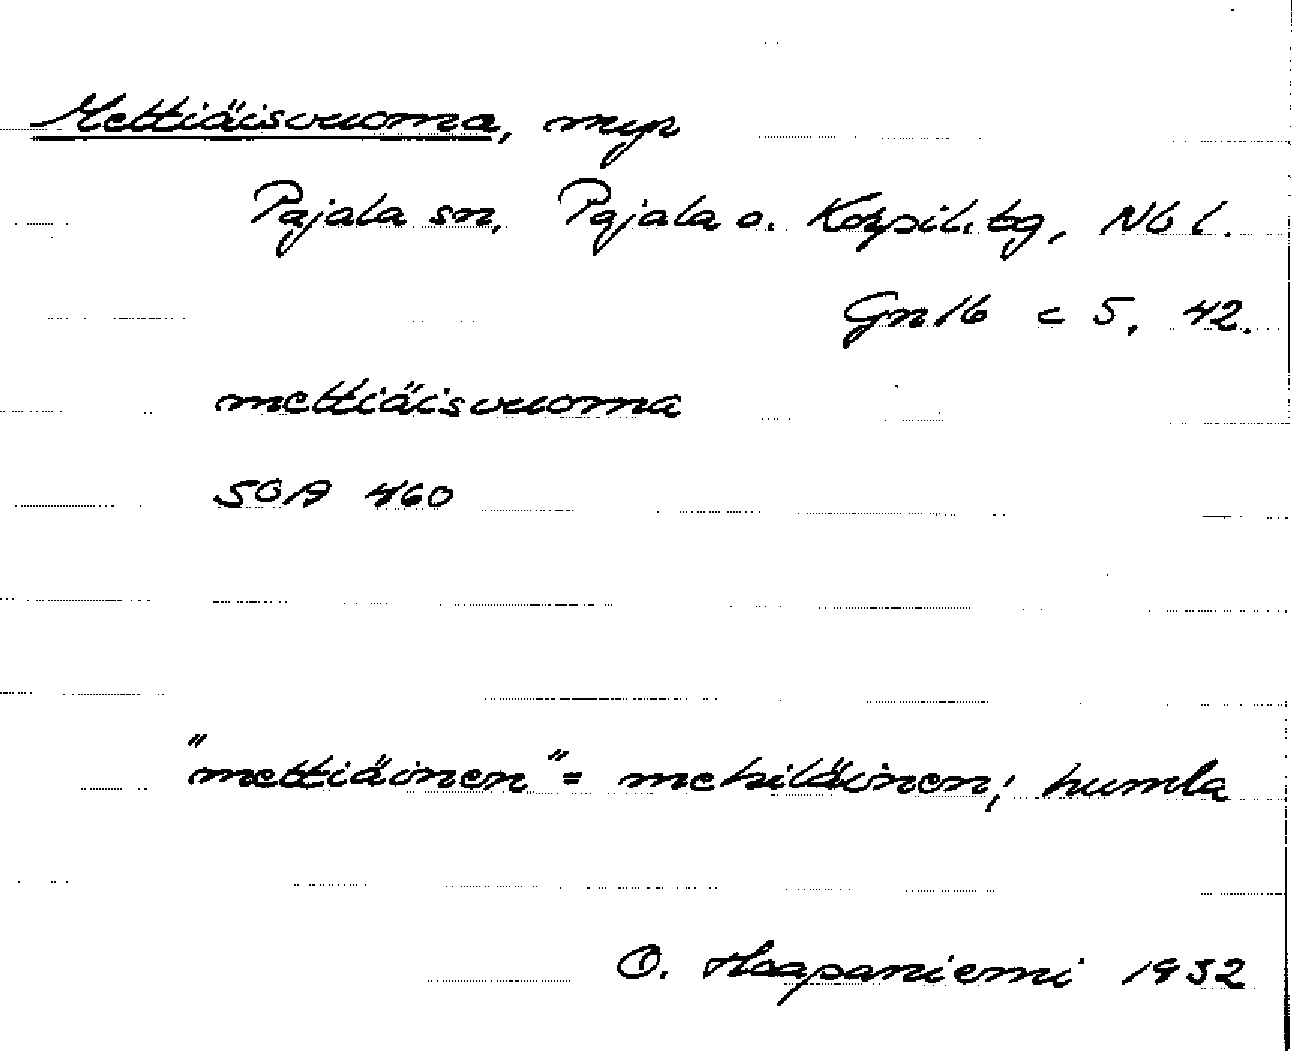 Mettiäisvuoma, myr
Pajala sn, Pajala o. Korpil. tg, Nb l.
Gn 16 c 5, 42.
mettiäisvuoma
SOA 460
"mettiäinen" = mehiläinen; humla
O. Haapaniemi 1932